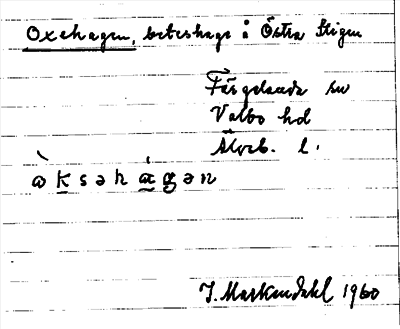 Oxehagen, beteshage å Östra Stigen
Färgelanda sn
Valbo hd
Älvsb. l.
J. Markendahl 1960